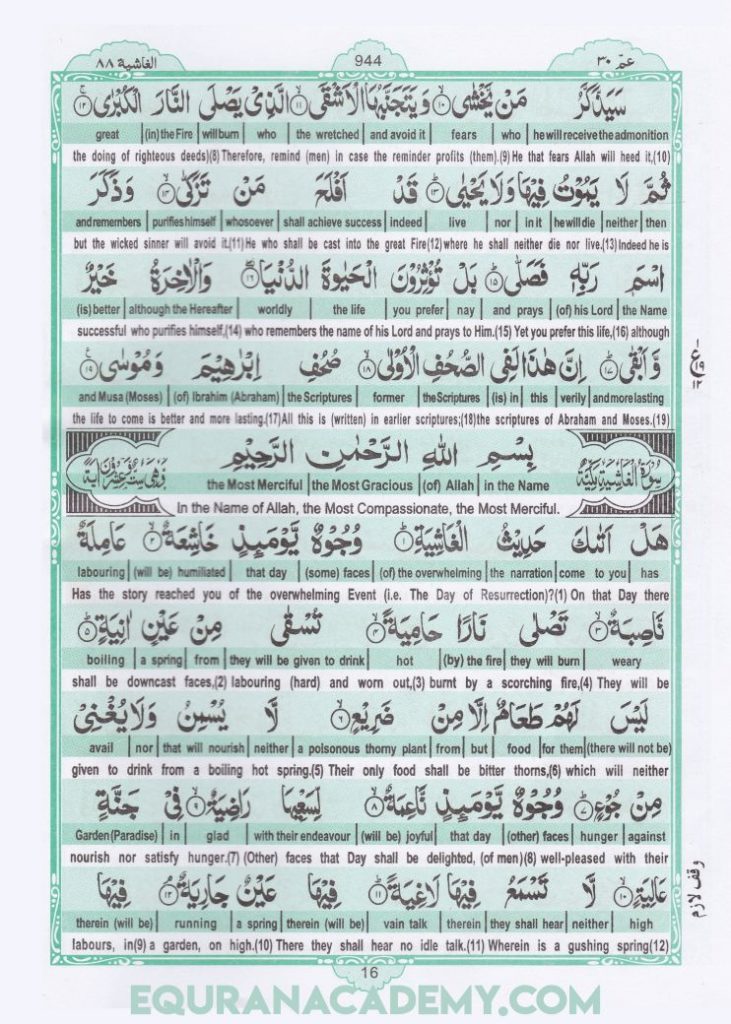 عمّ ٣٠
944
الغاشية ٨٨
سَيَذَّكَّرُ مَنْ يَّخْشٰى ١٠ وَيَتَجَنَّبُهَا الْاَشْقَى ١١ الَّذِيْ يَصْلَى النَّارَ الْكُبْرٰى ١٢
great | (in) the Fire | will burn | who | the wretched | and avoid it | fears | who | he will receive the admonition
the doing of righteous deeds)(8) Therefore, remind (men) in case the reminder profits (them).(9) He that fears Allah will heed it,(10)
ثُمَّ لَا يَمُوْتُ فِيْهَا وَلَا يَحْيٰى ١٣ قَدْ اَفْلَحَ مَنْ تَزَكّٰى ١٤ وَذَكَرَ
and remembers | purifies himself | whosoever | shall achieve success | indeed | live | nor | in it | he will die | neither | then
but the wicked sinner will avoid it.(11) He who shall be cast into the great Fire(12) where he shall neither die nor live.(13) Indeed he is
اسْمَ رَبِّهٖ فَصَلّٰى ١٥ بَلْ تُؤْثِرُوْنَ الْحَيٰوةَ الدُّنْيَا ١٦ وَالْاٰخِرَةُ خَيْرٌ
(is) better | although the Hereafter | worldly | the life | you prefer | nay | and prays | (of) his Lord | the Name
successful who purifies himself,(14) who remembers the name of his Lord and prays to Him.(15) Yet you prefer this life,(16) although
وَّاَبْقٰى ١٧ اِنَّ هٰذَا لَفِى الصُّحُفِ الْاُوْلٰى ١٨ صُحُفِ اِبْرٰهِيْمَ وَمُوْسٰى ١٩
and Musa (Moses) | (of) Ibrahim (Abraham) | the Scriptures | former | the Scriptures | (is) in | this | verily | and more lasting
the life to come is better and more lasting.(17) All this is (written) in earlier scriptures;(18) the scriptures of Abraham and Moses.(19)
ع ١٩ ١٢
سُوْرَةُ الْغَاشِيَةِ مَكِّيَّةٌ
بِسْمِ اللهِ الرَّحْمٰنِ الرَّحِيْمِ
وَّهِيَ سِتٌّ وَّعِشْرُوْنَ اٰيَةً
the Most Merciful | the Most Gracious | (of) Allah | in the Name
In the Name of Allah, the Most Compassionate, the Most Merciful.
هَلْ اَتٰىكَ حَدِيْثُ الْغَاشِيَةِ ١ وُجُوْهٌ يَّوْمَىِٕذٍ خَاشِعَةٌ ٢ عَامِلَةٌ
labouring | (will be) humiliated | that day | (some) faces | (of) the overwhelming | the narration | come to you | has
Has the story reached you of the overwhelming Event (i.e. The Day of Resurrection)?(1) On that Day there
نَّاصِبَةٌ ٣ تَصْلٰى نَارًا حَامِيَةً ٤ تُسْقٰى مِنْ عَيْنٍ اٰنِيَةٍ ٥
boiling | a spring | from | they will be given to drink | hot | (by) the fire | they will burn | weary
shall be downcast faces,(2) labouring (hard) and worn out,(3) burnt by a scorching fire,(4) They will be
لَيْسَ لَهُمْ طَعَامٌ اِلَّا مِنْ ضَرِيْعٍ ٦ لَّا يُسْمِنُ وَلَا يُغْنِيْ
avail | nor | that will nourish | neither | a poisonous thorny plant | from | but | food | for them | (there will not be)
given to drink from a boiling hot spring.(5) Their only food shall be bitter thorns,(6) which will neither
مِنْ جُوْعٍ ٧ وُجُوْهٌ يَّوْمَىِٕذٍ نَّاعِمَةٌ ٨ لِّسَعْيِهَا رَاضِيَةٌ ٩ فِيْ جَنَّةٍ
Garden (Paradise) | in | glad | with their endeavour | (will be) joyful | that day | (other) faces | hunger | against
nourish nor satisfy hunger.(7) (Other) faces that Day shall be delighted, (of men)(8) well-pleased with their
وقف لازم
عَالِيَةٍ ١٠ لَّا تَسْمَعُ فِيْهَا لَاغِيَةً ١١ فِيْهَا عَيْنٌ جَارِيَةٌ ١٢ فِيْهَا
therein (will be) | running | a spring | therein (will be) | vain talk | therein | they shall hear | neither | high
labours, in(9) a garden, on high.(10) There they shall hear no idle talk.(11) Wherein is a gushing spring(12)
16
EQURANACADEMY.COM